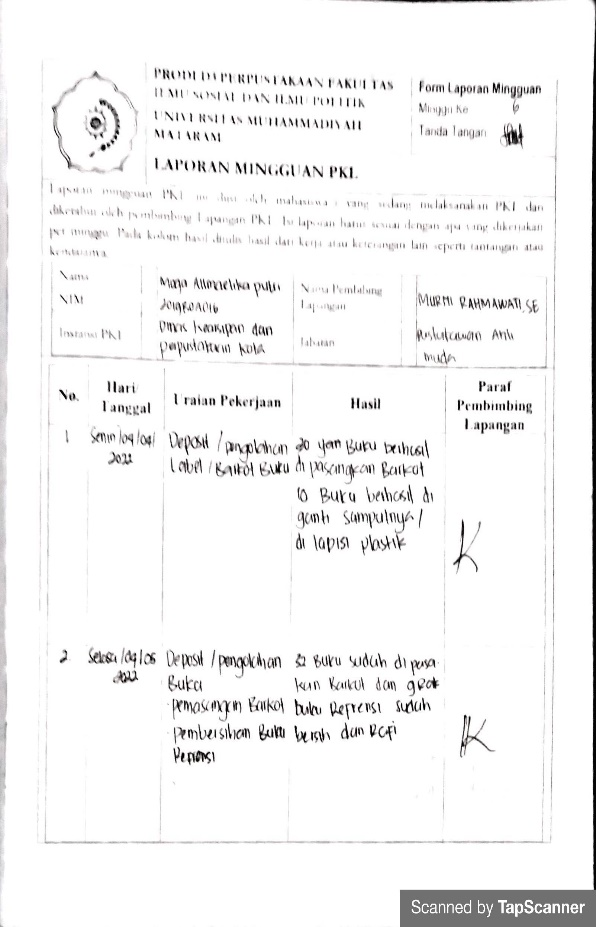 PRODI D3 PERPUSTAKAAN FAKULTAS
ILMU SOSIAL DAN ILMU POLITIK
UNIVERSITAS MUHAMMADIYAH
MATARAM
LAPORAN MINGGUAN PKL
Form Laporan Mingguan
Minggu Ke 6
Tanda Tangan
Laporan mingguan PKL ini diisi oleh mahasiswa i yang sedang melaksanakan PKL dan
diketahui oleh pembimbing Lapangan PKL. Isi laporan harus sesuai dengan apa yang dikerjakan
per minggu. Pada kolom hasil ditulis hasil dari kerja atau keterangan lain seperti tantangan atau
kendalanya.
Nama
NIM
Instansi PKL
putri
Dinas Kearsipan dan
perpustakaan Kota
Nama Pembibing
Lapangan
Jabatan
MURNI RAHMAWATI, SE
Ahli
muda
No.
Hari
Tanggal
Uraian Pekerjaan
Hasil
Paraf
Pembimbing
Lapangan
1
Senin/04/04/
2022
Deposit / pengolahan
Label / Barkot Buku
20 yan Buku berhasil
di pasangkan Barkot
10 Buku berhasil di
ganti sampulnya /
di lapisi plastik
2
Selasa/04/05
2022
Deposit / pengolahan
Buku
- pemasangan Barkot
- pembersihan Buku
Refrensi
32 Buku sudah di pasa
kan Barkot dan
buku Refrensi sudah
bersih dan Rafi
Scanned by TapScanner